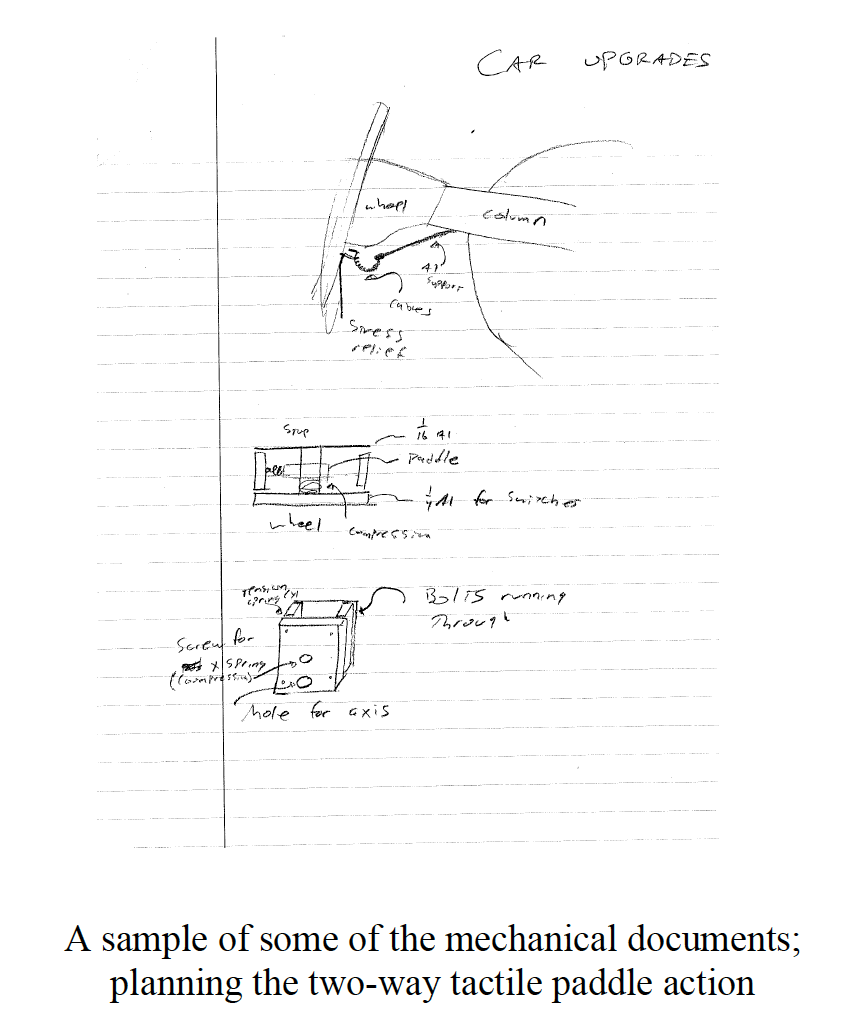 CAR UPGRADES
wheel
column
Al
support
cables
Stress
relief
Stop
1/16 Al
Paddle
1/4 Al for Switches
wheel
compression
Tension
spring (x)
Bolts running
Through
Screw for
x spring
(compression)
hole for axis
A sample of some of the mechanical documents;
planning the two-way tactile paddle action